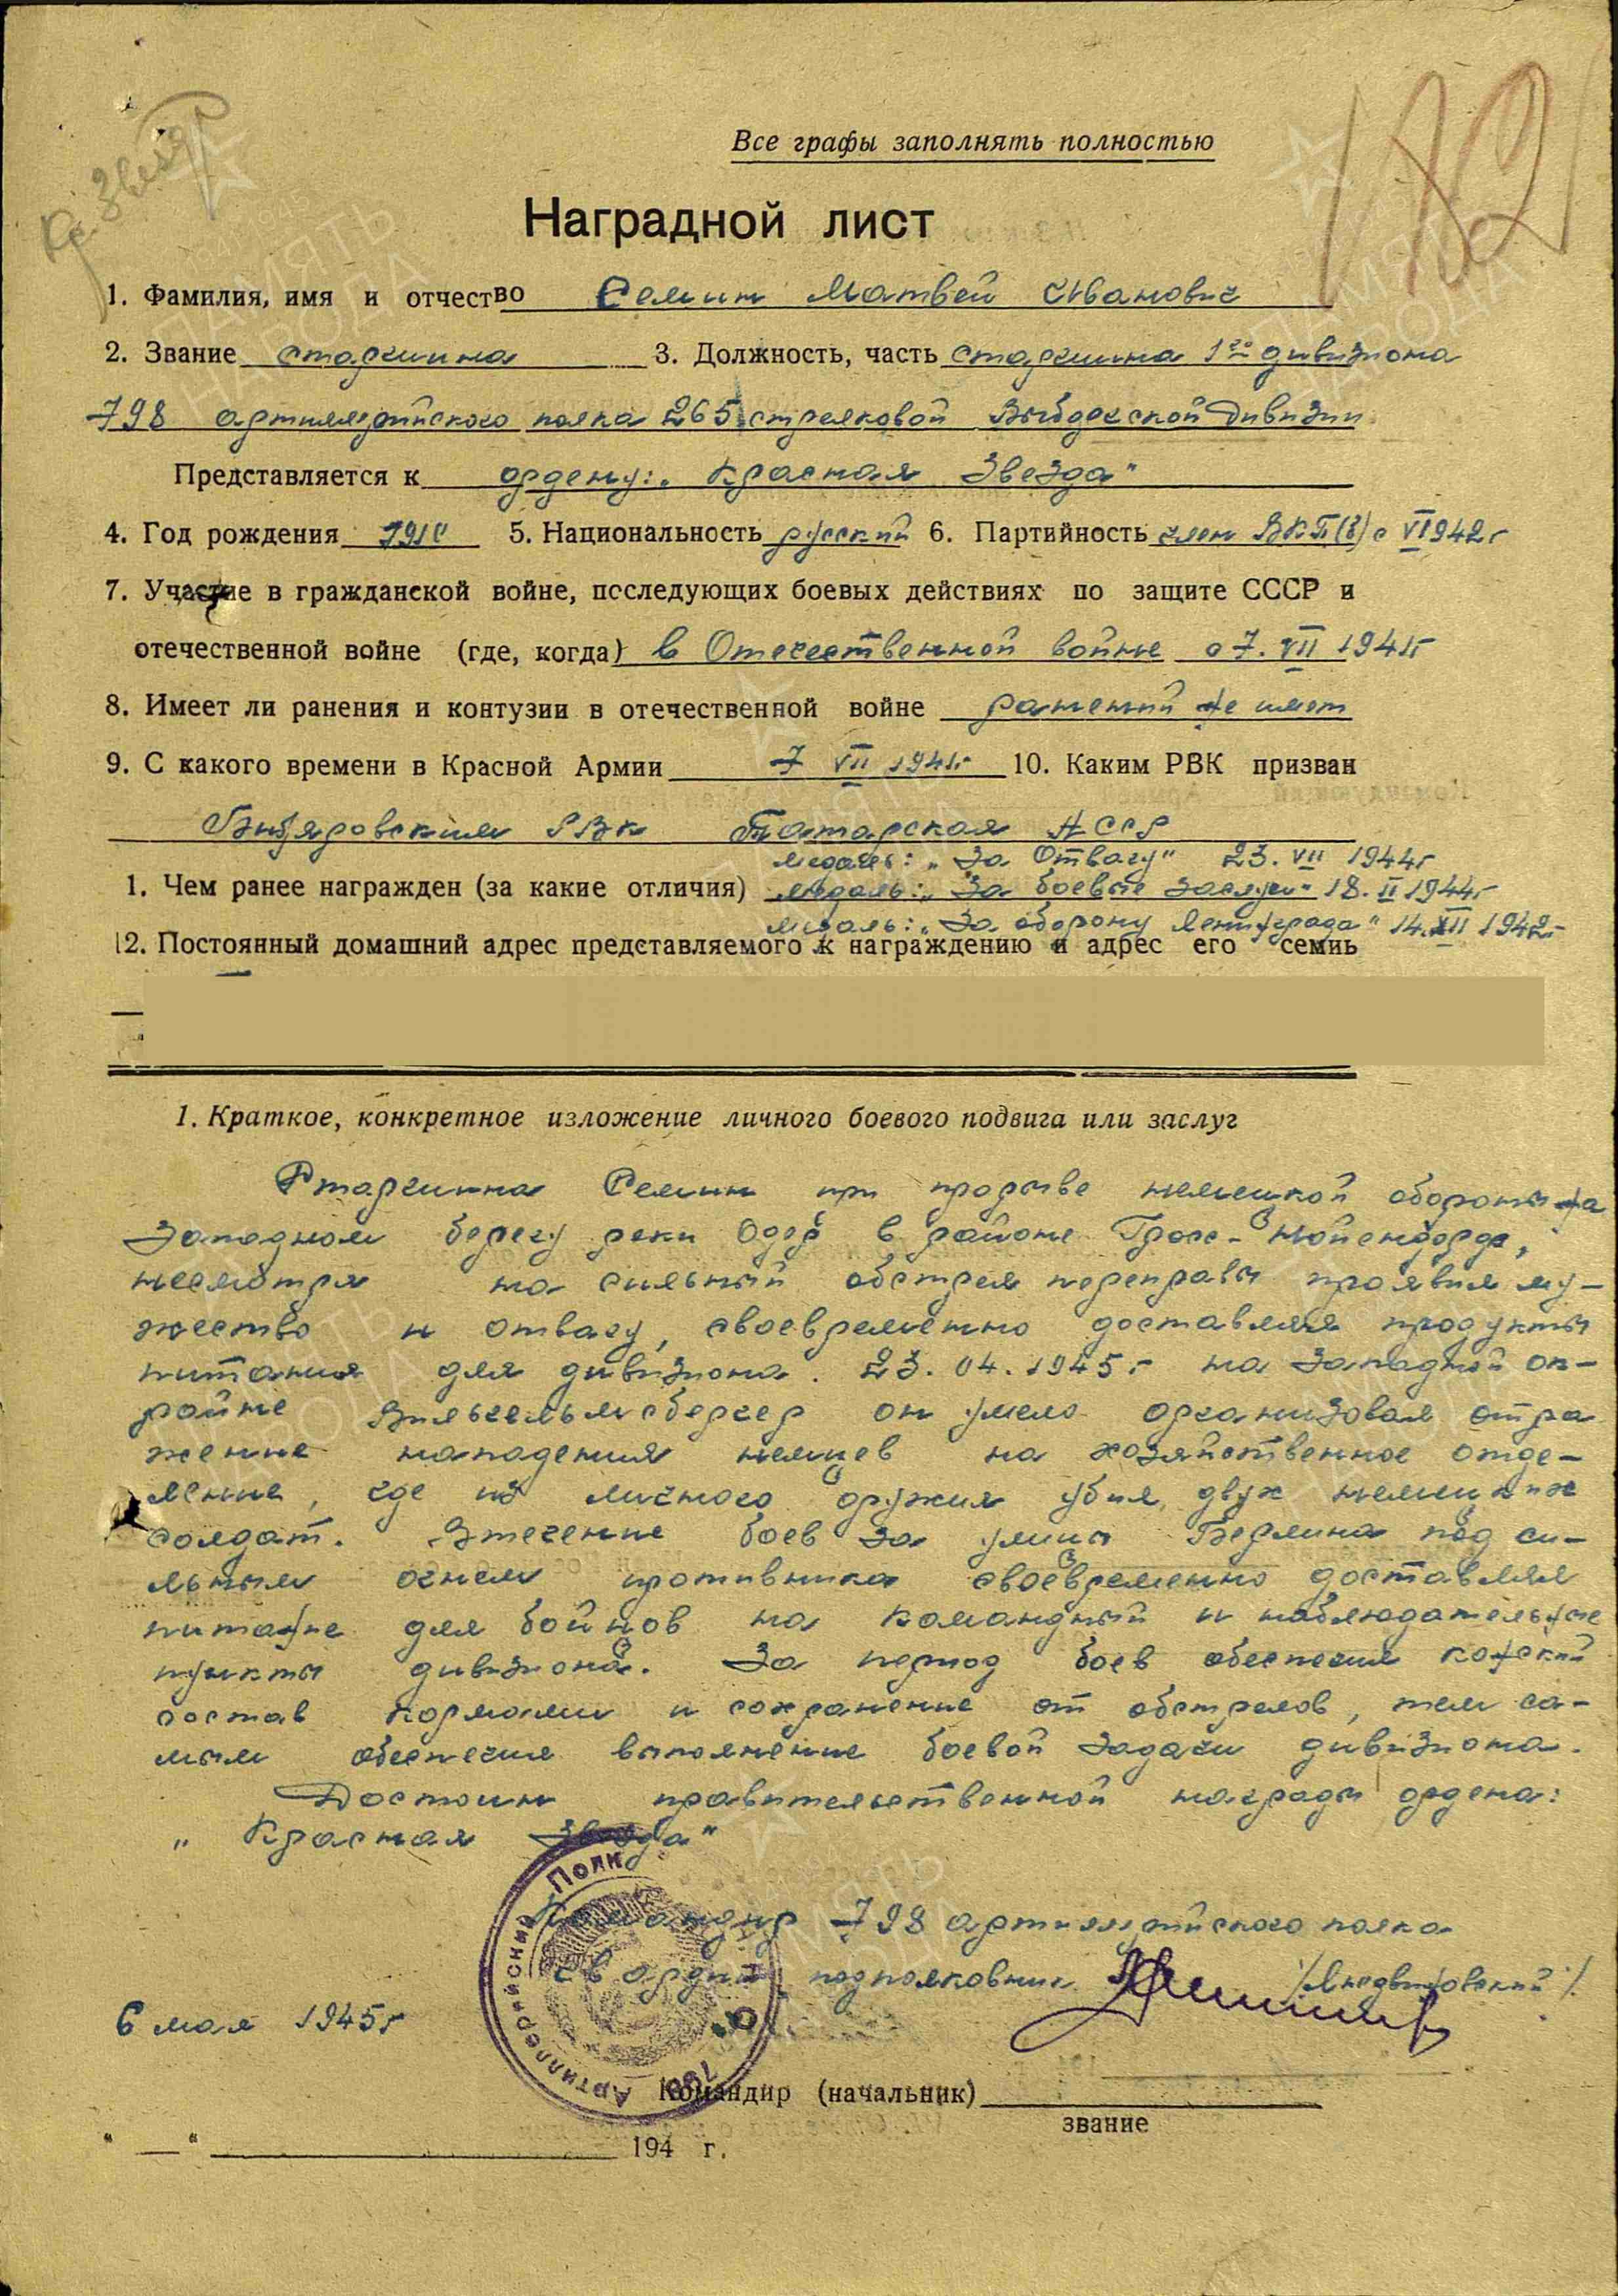 Кр. Звезда
Все графы заполнять полностью
Наградной лист
1. Фамилия, имя и отчество Семин Матвей Иванович
2. Звание старшина 3. Должность, часть старшина 1го дивизиона
798 артиллерийского полка 265 стрелковой Выборгской Дивизии
Представляется к ордену: „Красная Звезда"
4. Год рождения 1910 5. Национальность русский 6. Партийность член ВКП(б) с VI 1942г
7. Участие в гражданской войне, последующих боевых действиях по защите СССР и
отечественной войне (где, когда) в Отечественной войне с 7. VII 1941г
8. Имеет ли ранения и контузии в отечественной войне ранений не имеет
9. С какого времени в Красной Армии 7 VII 1941г 10. Каким РВК призван
РВК Татарская АССР
медаль: „За Отвагу" 23. VII 1944г
1. Чем ранее награжден (за какие отличия) медаль: „За боевые заслуги" 18. II 1944г
медаль: „За оборону Ленинграда" 14. XII 1942г
12. Постоянный домашний адрес представляемого к награждению и адрес его семиь
1. Краткое, конкретное изложение личного боевого подвига или заслуг
Старшина Семин при прорыве немецкой обороны на
Западном берегу реки Одер в районе Грос-
несмотря на сильный обстрел переправы проявил му-
жество и отвагу, своевременно доставляя продукты
питания для дивизиона. 23.04.1945г на Западной ок-
райне он умело организовал отра
жение нападения немцев на хозяйственное отде-
ление, где из личного оружия убил двух немецких
солдат. Втечение боев за улицы Берлина под си-
льным огнем противника своевременно доставлял
питание для бойцов на командный и наблюдательные
пункты дивизиона. За период боев обеспечил конский
состав кормами и сохранение от обстрелов, тем са-
мым обеспечил выполнение боевой задачи дивизиона.
Достоин правительственной награды ордена:
„Красная Звезда"
Командир 798 артиллерийского полка
подполковник
6 мая 1945г
Артиллерийский Полк
Командир (начальник)
звание
" — " 194 г.
ПАМЯТЬ
НАРОДА